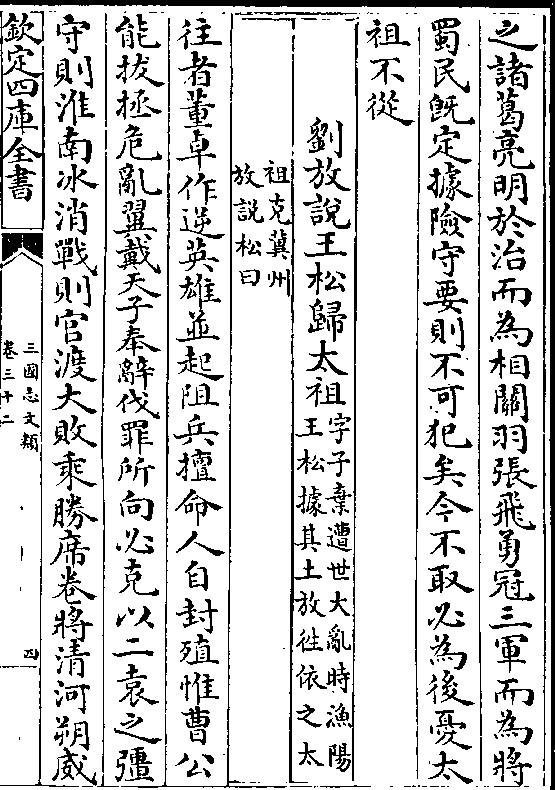 之諸葛亮明於治而為相關羽張飛勇冠三軍而為將
蜀民既定據險守要則不可犯矣今不取必為後憂太
祖不從
劉放說王松歸太祖
字子棄遭世大亂時漁陽
王松據其土放徃依之太
祖克冀州
放說松曰
往者董卓作逆英雄並起阻兵擅命人自封殖惟曹公
能拔拯危亂翼戴天子奉辭伐罪所向必克以二袁之彊
守則淮南冰消戰則官渡大敗乘勝席卷將清河朔威
欽定四庫全書
三國志文類
卷三十二
四